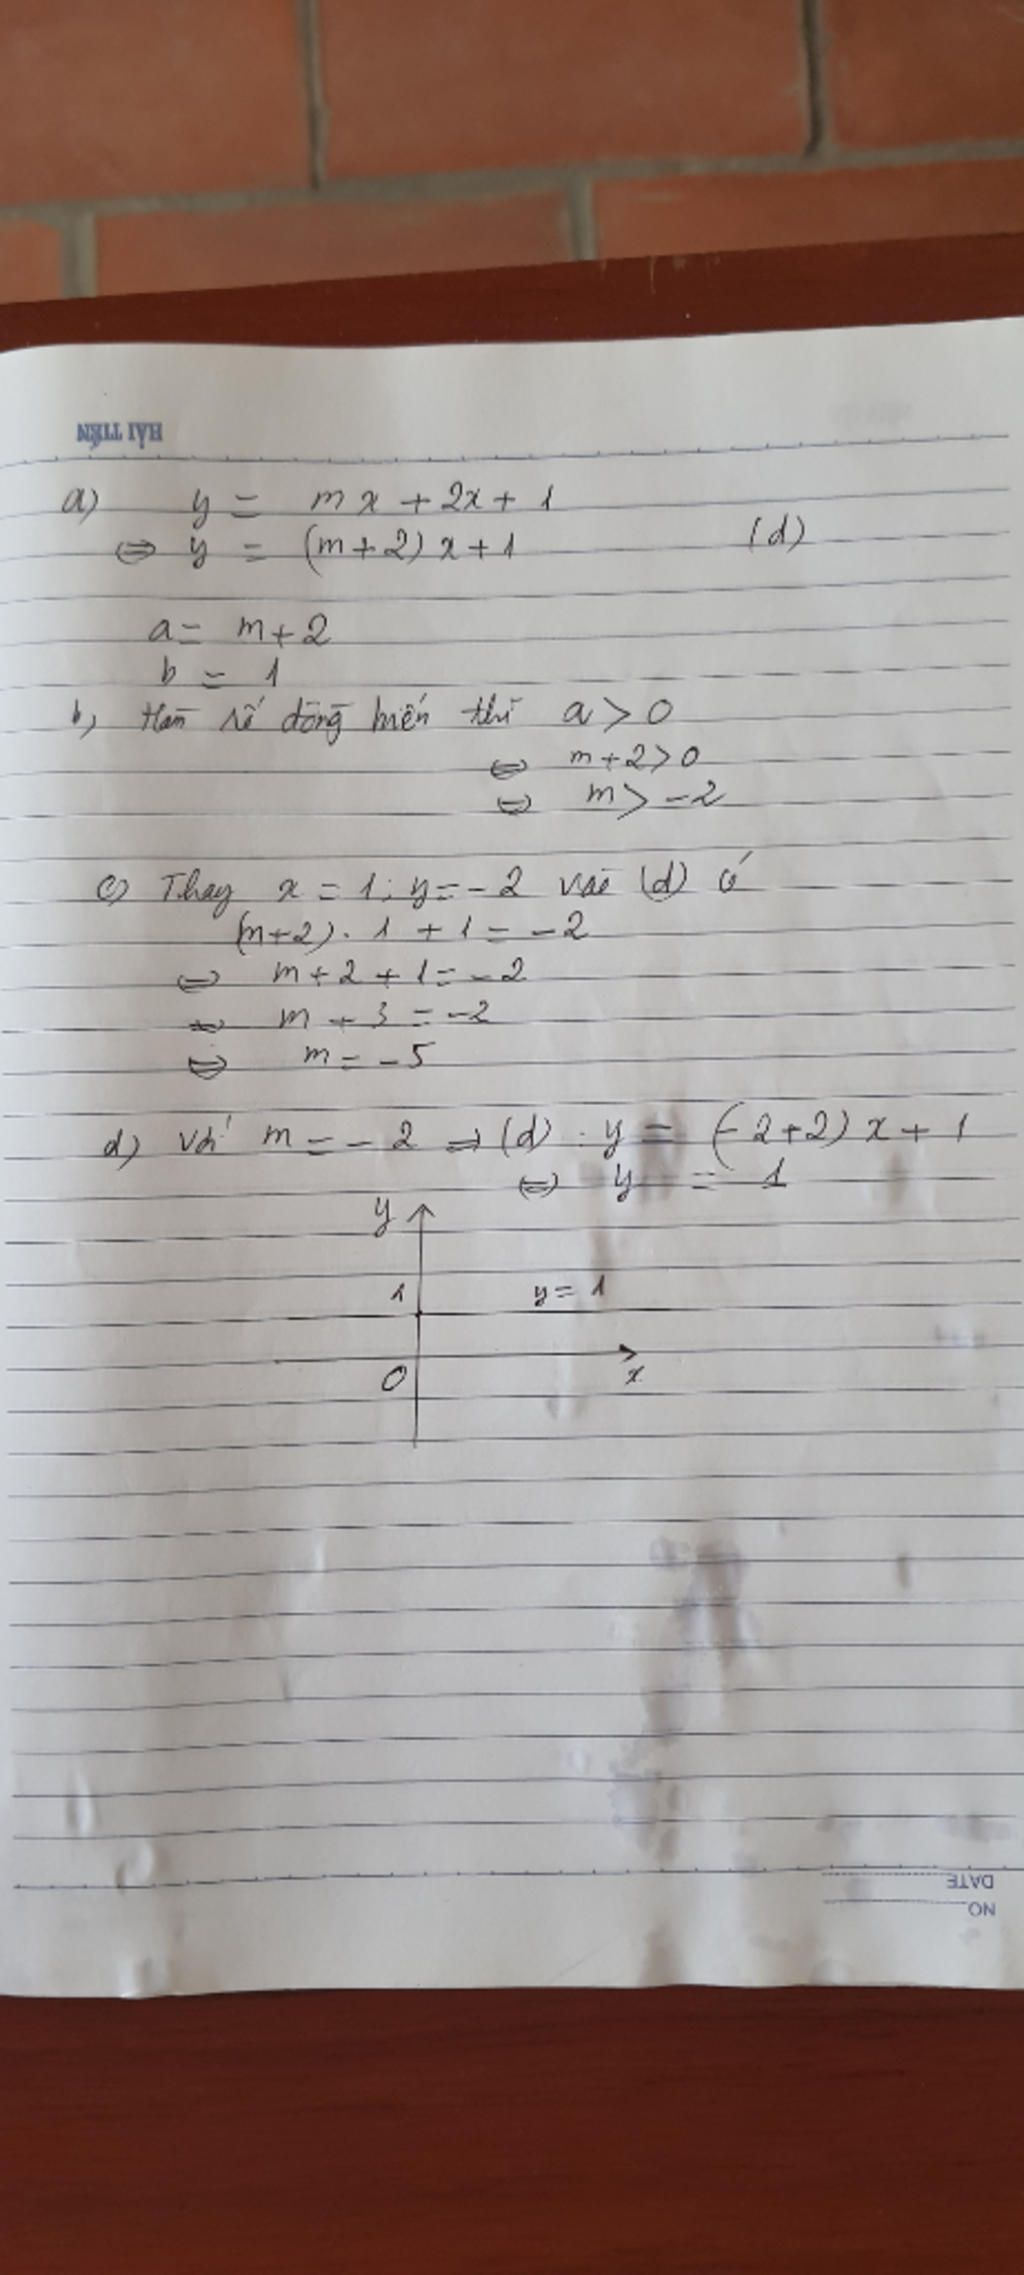 HẢI TIẾN
a) y = mx + 2x + 1
⇔ y = (m+2)x+1 (d)
a = m+2
b = 1
b, Hàm số đồng biến thì a > 0
⇔ m+2>0
⇔ m > -2
c) Thay x = 1; y = -2 vào (d) có
(m+2). 1 + 1 = -2
⇔ m+2+1=-2
⇔ m + 3 = -2
⇔ m = -5
d) Với m = -2 ⇒ (d) : y = (-2+2)x+1
⇔ y = 1
y
1 y = 1
O x
DATE
NO